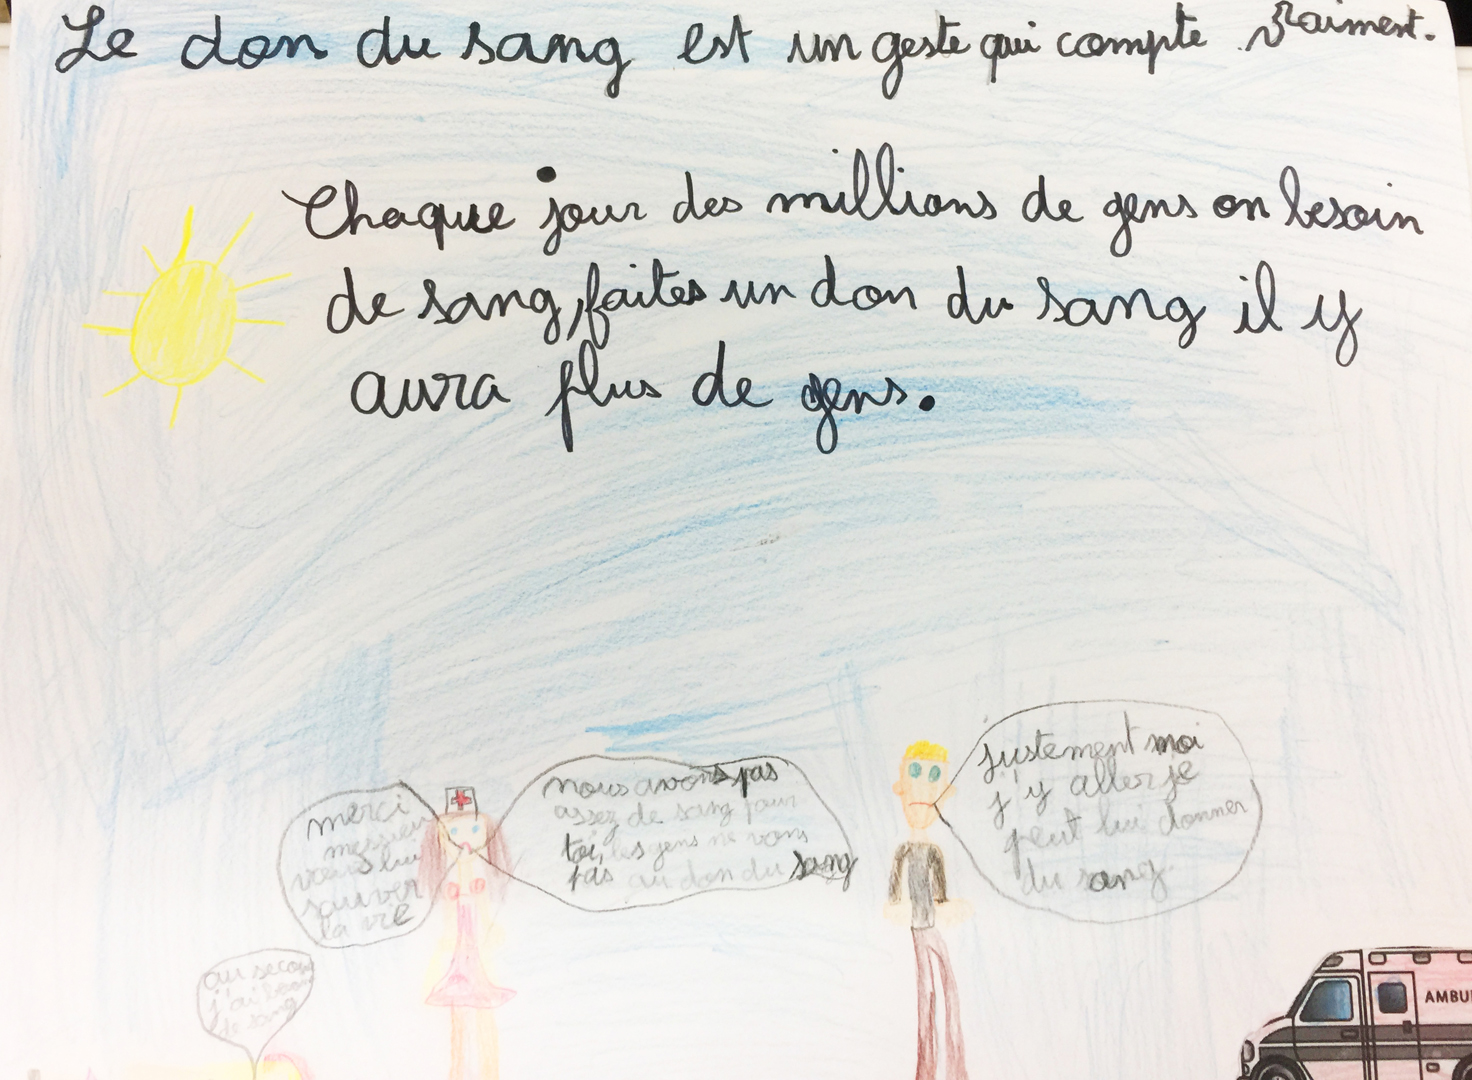 Le don du sang est un geste qui compte vraiment.
Chaque jour des millions de gens on besoin
de sang, faites un don du sang il y
aura plus de gens.
merci
messieu
vous lui
sauver
la vie
nous avons pas
assez de sang pour
toi, les gens ne vons
pas au don du sang
justement moi
j'y aller je
peut lui donner
du sang
au secour
j'ai besoin
de sang
AMBU